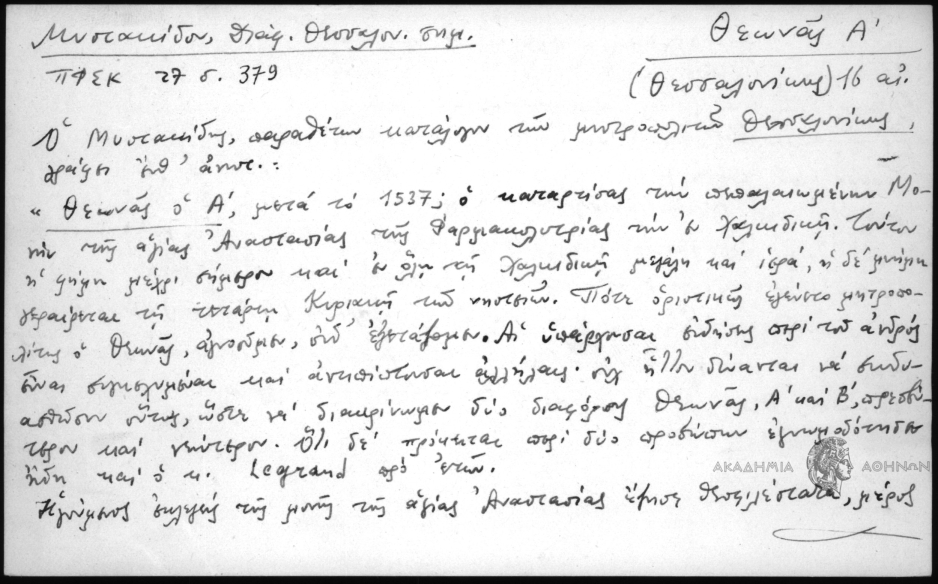 Μυστακίδου, Διάφ. Θεσσαλον. σημ.
Θεωνᾶς Α'
ΠΦΣΚ 27 σ. 379
(Θεσσαλονίκης) 16 αἰ.
Ὁ Μυστακίδης, παραθέτων κατάλογον τῶν μητροπολιτῶν Θεσσαλονίκης,
γράφει ἐνθ' ἀνωτ.:
" Θεωνᾶς ὁ Α', μετά τό 1537; ὁ καταρτίσας τήν πεπαλαιωμένην Μο-
νήν τῆς ἁγίας Ἀναστασίας τῆς Φαρμακολυτρίας τήν ἐν Χαλκιδικῇ. Τούτου
ἡ φήμη μέχρι σήμερον καί ἐν ὅλῃ τῇ Χαλκιδικῇ μεγάλη καί ἱερά, ἡ δέ μνήμη
γεραίρεται τῇ τετάρτῃ Κυριακῇ τῶν νηστειῶν. Πότε ὁριστικῶς ἐγένετο μητροπο-
λίτης ὁ Θεωνᾶς, ἀγνοοῦμεν, οὐδ' ἐξετάζομεν. Αἱ ὑπάρχουσαι εἰδήσεις περί τοῦ ἀνδρός
εἶναι συγκεχυμέναι καί ἀντιπίπτουσαι ἀλλήλαις· οὐχ ἧττον δύνανται νά συνδυ-
ασθῶσιν οὕτως, ὥστε νά διακρίνωμεν δύο διαφόρους Θεωνᾶς, Α' καί Β', πρεσβύ-
τερον καί νεώτερον. Ὅτι δέ πρόκειται περί δύο προσώπων ἐγνωμοδότησεν
ἤδη καί ὁ κ. Legrand πρό ἐτῶν.
Ἡγούμενος ἐκλεγείς τῆς μονῆς τῆς ἁγίας Ἀναστασίας ἔζησε θεοφιλέστατα, μέρος
ΑΚΑΔΗΜΙΑ ΑΘΗΝΩΝ